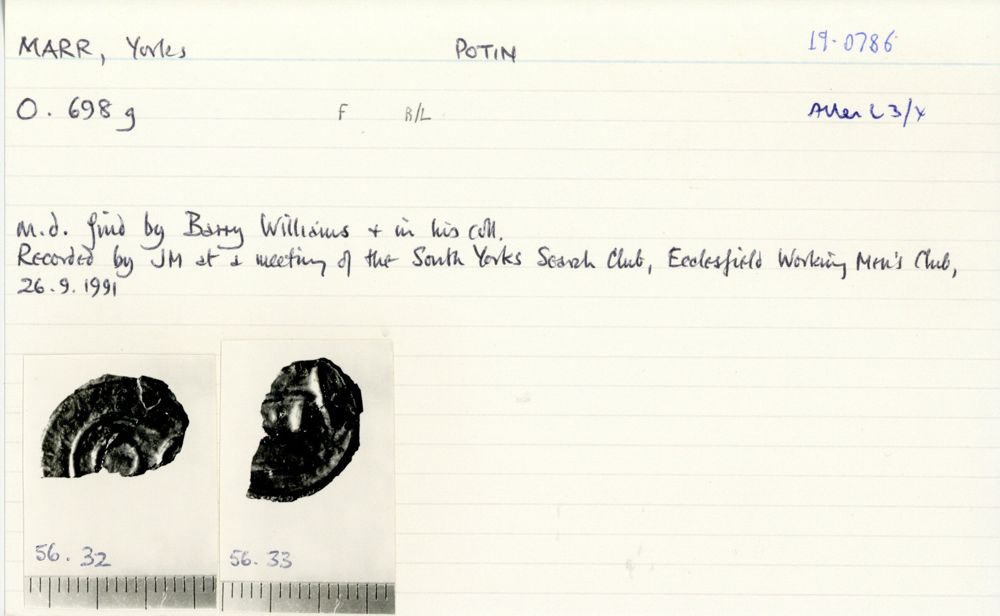 MARR, Yorks POTIN 19-0786
0.698 g F B/L Allen L 3/4
m.d. find by Barry Williams + in his coll.
Recorded by JM at a meeting of the South Yorks Search Club, Ecclesfield Working Men's Club,
26.9.1991
56.32 56.33